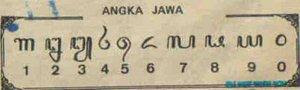 ANGKA JAWA
꧑ ꧒ ꧓ ꧔ ꧕ ꧖ ꧗ ꧘ ꧙ ꧐
1 2 3 4 5 6 7 8 9 0